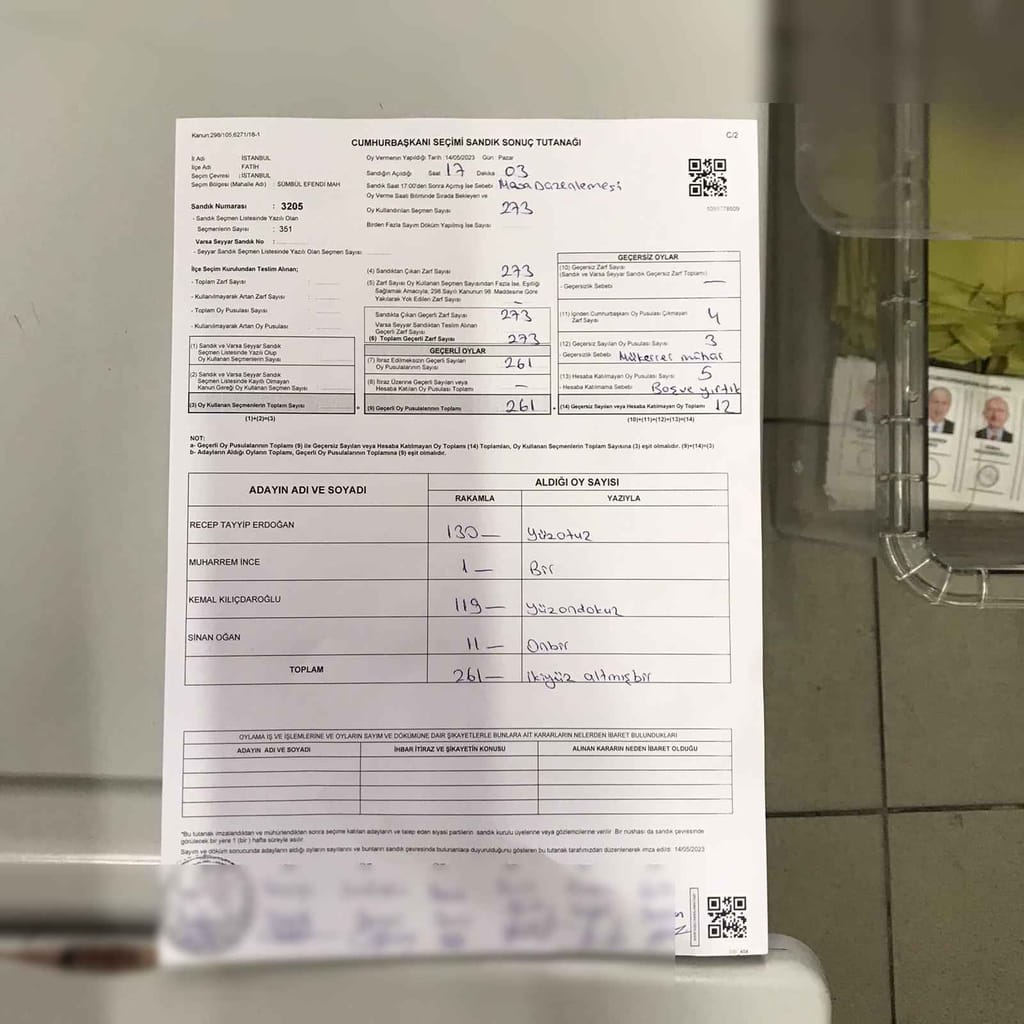 Kanun:298/105,6271/18-1
C/2
CUMHURBAŞKANI SEÇİMİ SANDIK SONUÇ TUTANAĞI
İl Adı : İSTANBUL
İlçe Adı : FATİH
Seçim Çevresi : İSTANBUL
Seçim Bölgesi (Mahalle Adı) : SÜMBÜL EFENDİ MAH
Sandık Numarası : 3205
- Sandık Seçmen Listesinde Yazılı Olan
Seçmenlerin Sayısı : 351
Varsa Seyyar Sandık No :
- Seyyar Sandık Seçmen Listesinde Yazılı Olan Seçmen Sayısı
Oy Vermenin Yapıldığı Tarih :14/05/2023 Gün : Pazar
Sandığın Açıldığı Saat 17 Dakika 03
Sandık Saat 17.00'den Sonra Açılmış İse Sebebi Masa Düzenlemesi
Oy Verme Saati Bitiminde Sırada Bekleyen ve
Oy Kullandırılan Seçmen Sayısı 273
Birden Fazla Sayım Döküm Yapılmış İse Sayısı
İlçe Seçim Kurulundan Teslim Alınan;
- Toplam Zarf Sayısı :
- Kullanılmayarak Artan Zarf Sayısı :
- Toplam Oy Pusulası Sayısı :
- Kullanılmayarak Artan Oy Pusulası :
(1) Sandık ve Varsa Seyyar Sandık
Seçmen Listesinde Yazılı Olup
Oy Kullanan Seçmenlerin Sayısı
(2) Sandık ve Varsa Seyyar Sandık
Seçmen Listesinde Kayıtlı Olmayan
Kanun Gereği Oy Kullanan Seçmen Sayısı
(3) Oy Kullanan Seçmenlerin Toplam Sayısı
(1)+(2)=(3)
(4) Sandıktan Çıkan Zarf Sayısı 273
(5) Zarf Sayısı Oy Kullanan Seçmen Sayısından Fazla İse, Eşitliği
Sağlamak Amacıyla, 298 Sayılı Kanunun 98. Maddesine Göre
Yakılarak Yok Edilen Zarf Sayısı –
Sandıkta Çıkan Geçerli Zarf Sayısı 273
Varsa Seyyar Sandıktan Teslim Alınan
Geçerli Zarf Sayısı
(6) Toplam Geçerli Zarf Sayısı 273
GEÇERLİ OYLAR
(7) İtiraz Edilmeksizin Geçerli Sayılan
Oy Pusulalarının Sayısı 261
(8) İtiraz Üzerine Geçerli Sayılan veya
Hesaba Katılan Oy Pusulası Toplamı –
(9) Geçerli Oy Pusulalarının Toplamı 261
GEÇERSİZ OYLAR
(10) Geçersiz Zarf Sayısı
(Sandık ve Varsa Seyyar Sandık Geçersiz Zarf Toplamı) —
- Geçersizlik Sebebi
(11) İçinden Cumhurbaşkanı Oy Pusulası Çıkmayan
Zarf Sayısı 4
(12) Geçersiz Sayılan Oy Pusulası Sayısı 3
- Geçersizlik Sebebi Mükerrer mühür
(13) Hesaba Katılmayan Oy Pusula Sayısı 5
- Hesaba Katılmama Sebebi Boş ve yırtık
(14) Geçersiz Sayılan veya Hesaba Katılmayan Oy Toplamı 12
(10)+(11)+(12)+(13)=(14)
NOT:
a- Geçerli Oy Pusulalarının Toplamı (9) ile Geçersiz Sayılan veya Hesaba Katılmayan Oy Toplamı (14) Toplamları, Oy Kullanan Seçmenlerin Toplam Sayısına (3) eşit olmalıdır. (9)+(14)=(3)
b- Adayların Aldığı Oyların Toplamı, Geçerli Oy Pusulalarının Toplamına (9) eşit olmalıdır.
ADAYIN ADI VE SOYADI ALDIĞI OY SAYISI
RAKAMLA YAZIYLA
RECEP TAYYİP ERDOĞAN 130— Yüzotuz
MUHARREM İNCE 1— Bir
KEMAL KILIÇDAROĞLU 119— Yüzondokuz
SİNAN OĞAN 11— Onbir
TOPLAM 261— ikiyüz altmışbir
OYLAMA İŞ VE İŞLEMLERİNE VE OYLARIN SAYIM VE DÖKÜMÜNE DAİR ŞİKAYETLERLE BUNLARA AİT KARARLARIN NELERDEN İBARET BULUNDUKLARI
ADAYIN ADI VE SOYADI İHBAR İTİRAZ VE ŞİKAYETİN KONUSU ALINAN KARARIN NEDEN İBARET OLDUĞU
*Bu tutanak imzalandıktan ve mühürlendikten sonra seçime katılan adayların ve talep eden siyasi partilerin sandık kurulu üyelerine veya gözlemcilerine verilir. Bir nüshası da sandık çevresinde
görülecek bir yere 1 (bir) hafta süreyle asılır.
Sayım ve döküm sonucunda adayların aldığı oyların sayılarını ve bunların sandık çevresinde bulunanlara duyurulduğunu gösteren bu tutanak tarafımızdan düzenlenerek imza edildi. 14/05/2023